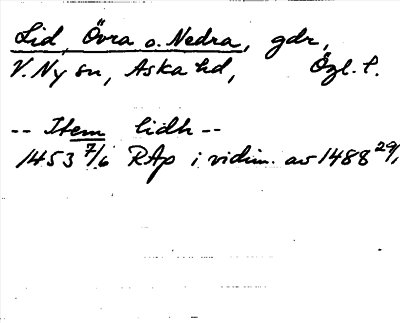 Lid, Övra o. Nedra, gdr,
V. Ny sn, Aska hd, Ögl. l.
-- Item lidh --
1453 7/6 RAp i vidim. av 1488 29/1